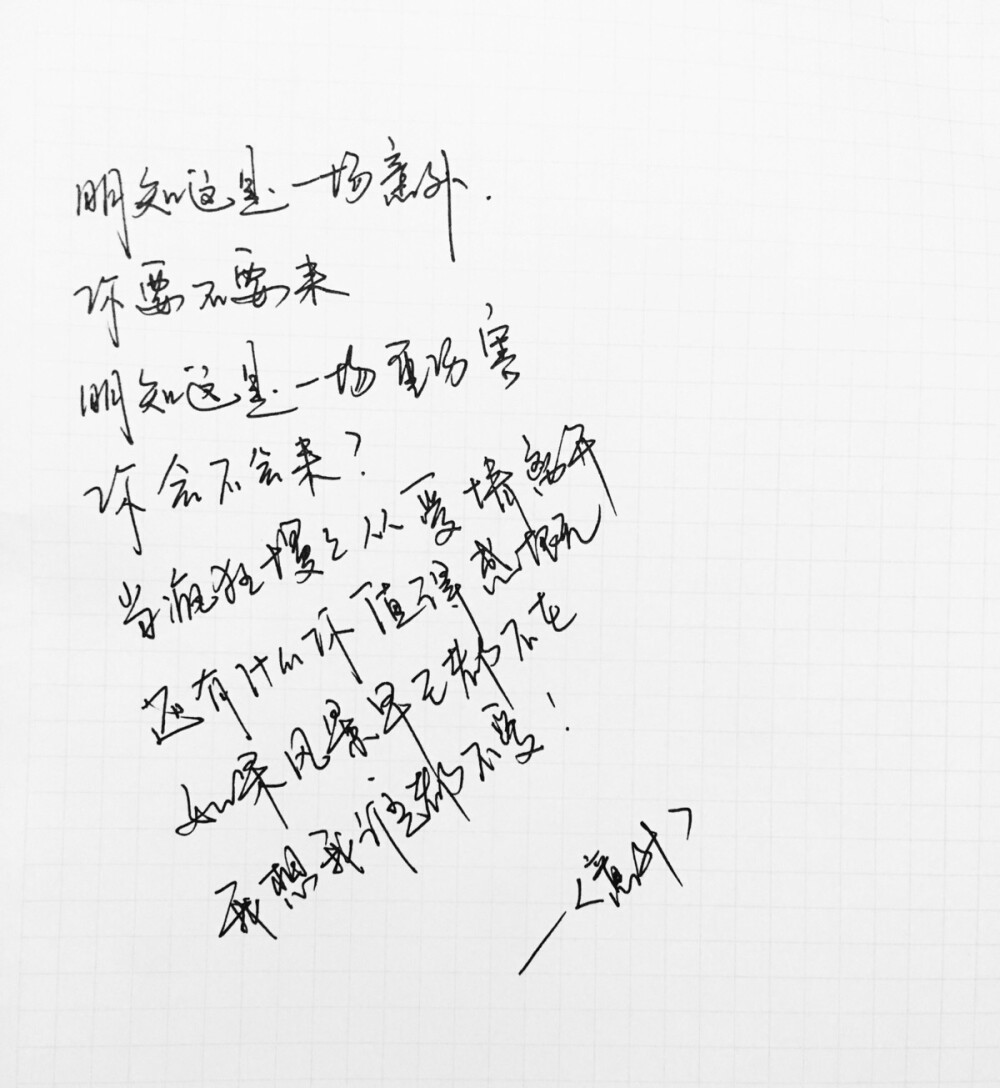 明知这是一场意外.
你要不要来
明知这是一场重伤害
你会不会来?
当疯狂慢慢从爱情离开
还有什么你值得感慨
如果风景早已都不在
我想我谁都不爱!
—〈意外〉